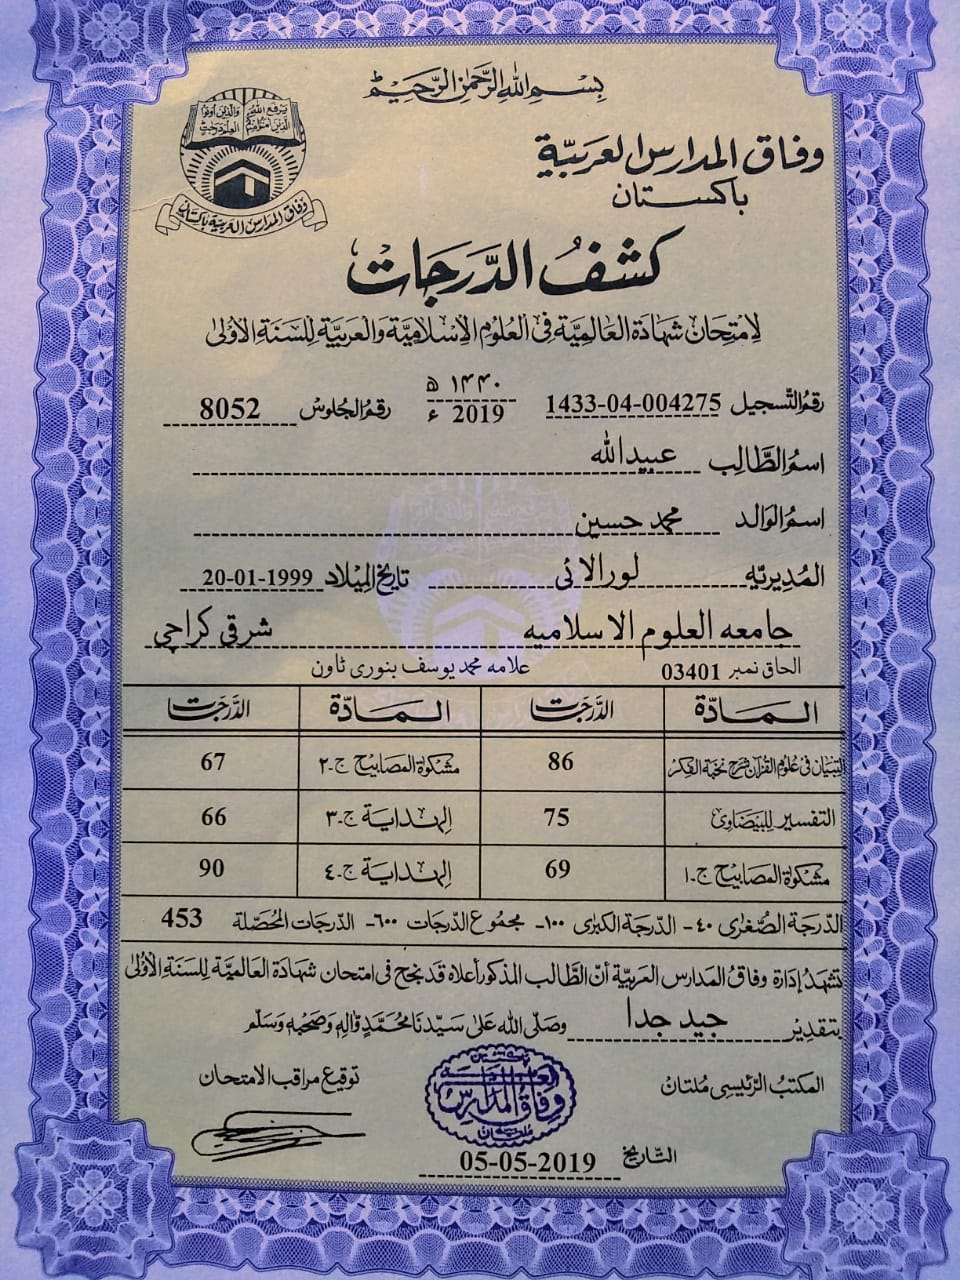 بِسْمِ اللهِ الرَّحْمٰنِ الرَّحِيْمِ
يرفع الله الذين آمنوا منكم والذين أوتوا العلم درجات
وفاق المدارس العربية باكستان
وفاق المدارس العربيّة
باكستان
كشفُ الدَّرَجَات
لِامتِحَان شهادة العَالمِيَّة فی العُلومِ الإسْلاميَّة والعَربيَّة للسنَةِ الأوْلىٰ
رقمُ التّسجيل 1433-04-004275 ١٤٤٠ ھ 2019 ء رقمُ الجلوس 8052
اسمُ الطَّالِب عبیداللہ
اسمُ الوَالد محمد حسین
المُديريّه لورالائی تاريخ المِيلاد 20-01-1999
جامعه العلوم الاسلامیه شرقی کراچی
الحاق نمبر 03401 علامہ محمد یوسف بنوری ٹاون
المادّة الدَّرَجَات المادّة الدَّرَجَات
التبيان فی علوم القرآن شرح نخبة الفكر 86 مشكوٰة المصابيح ج-۲ 67
التفسير للبيضاوی 75 الهداية ج-۳ 66
مشكوٰة المصابيح ج-۱ 69 الهداية ج-٤ 90
الدّرجة الصُّغرٰی ٤٠- الدّرجة الكبرٰی ١٠٠- مجموع الدّرجات ٦٠٠- الدّرجات المُحصّلة 453
تشهدُ إدارة وفاقُ المدارس العربيّة أنّ الطّالب المذكور أعلاه قد نجح فی امتحان شهادة العالميّة للسنة الأولىٰ
بتقدير جید جدا وصلّى الله علىٰ سيّدنا محمّدٍ وّآلهٖ وصحبهٖ وسلّم
المكتبُ الرّئيسِی مُلتان توقيع مراقب الامتحان
وفاق المدارس العربية
ملتان
التّاريخ 05-05-2019